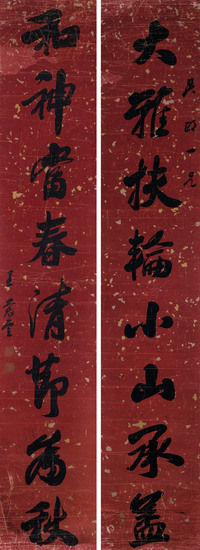 大雅扶輪小山承蓋
和神當春清節為秋